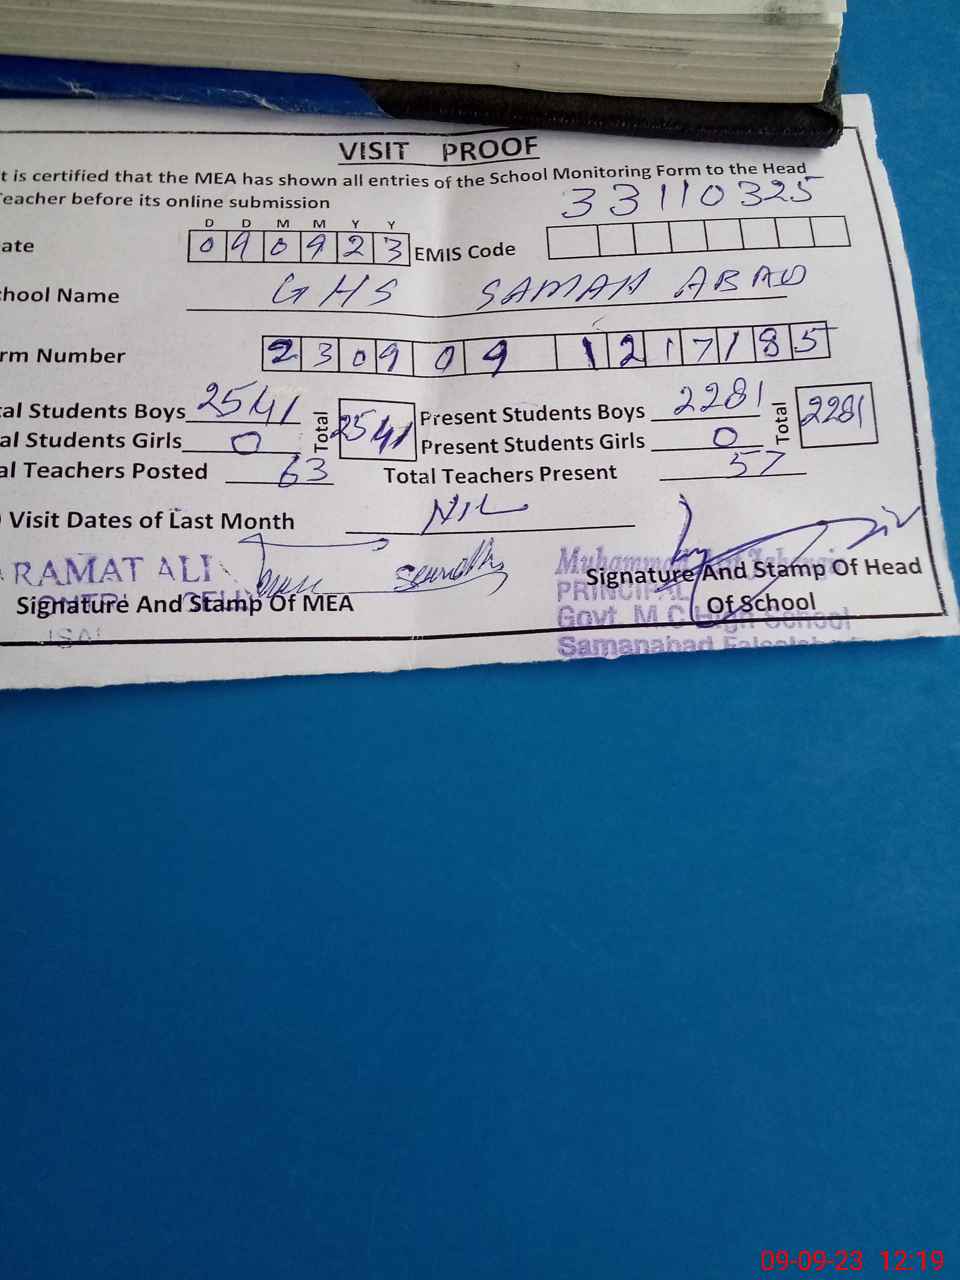 VISIT PROOF
t is certified that the MEA has shown all entries of the School Monitoring Form to the Head
eacher before its online submission
33110325
D D M M Y Y
ate 090923 EMIS Code
hool Name GHS SAMAN ABAD
rm Number 230909 1217185
al Students Boys 2541 Total 2541 Present Students Boys 2281 Total 2281
al Students Girls 0 Present Students Girls 0
al Teachers Posted 63 Total Teachers Present 57
Visit Dates of Last Month NIL
RAMAT ALI
Signature And Stamp Of MEA
Signature And Stamp Of Head
PRINCIPAL
Of School
Govt M.C High School
Samanabad
09-09-23 12:19